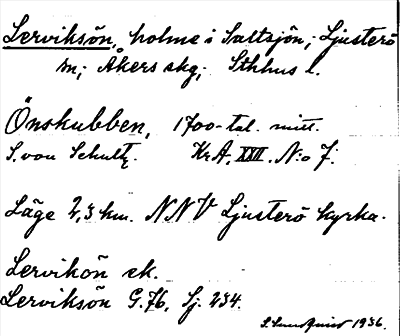 Lerviksön, holme i Saltsjön; Ljusterö
sn; Åkers skg; Sthlms l.
Önskubben, 1700-tal. mitt.
S. von Schultz. Kr A, XXII. N:o 7.
Läge 2,3 km. NNV Ljusterö kyrka.
Lervikön ek.
Lerviksön G.76, Sj. 234.
S. Lundqvist 1936.